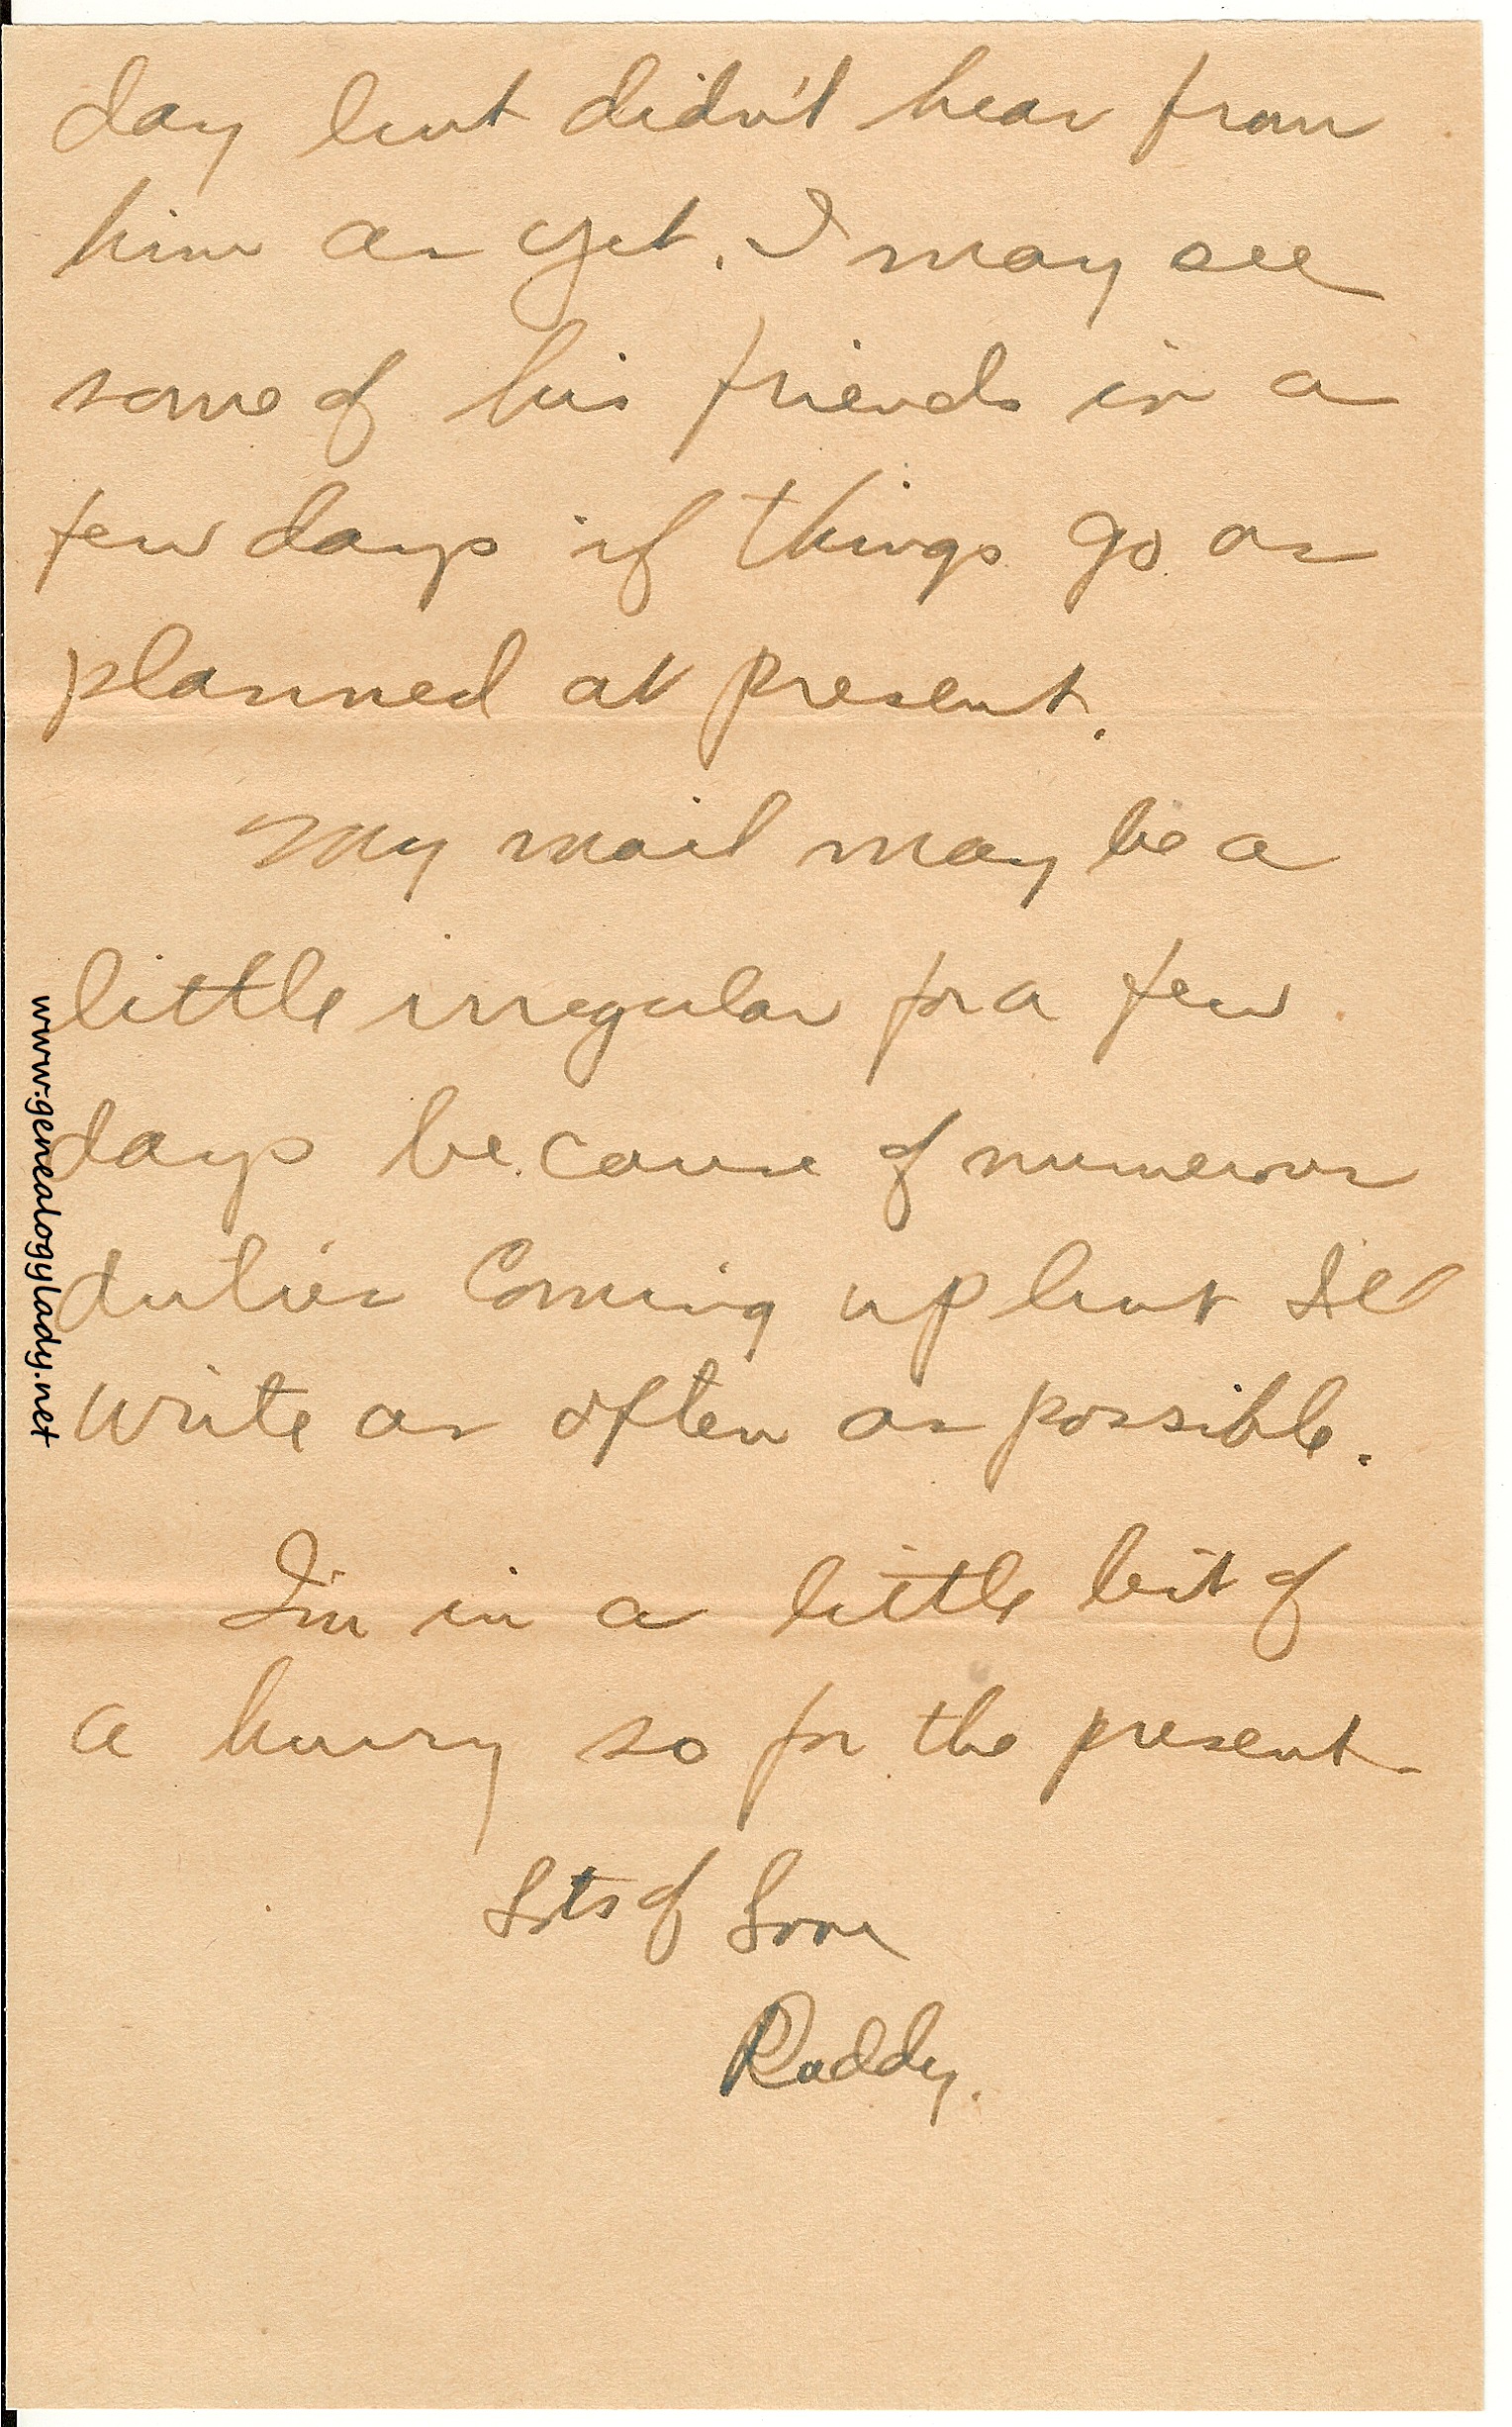 day but didn't hear from
him as yet. I may see
some of his friends in a
few days if things go as
planned at present.
My mail may be a
little irregular for a few
days because of numerous
duties coming up but I'll
write as often as possible.
I'm in a little bit of
a hurry so for the present
Lots of Love
Roddy.
www.genealogylady.net